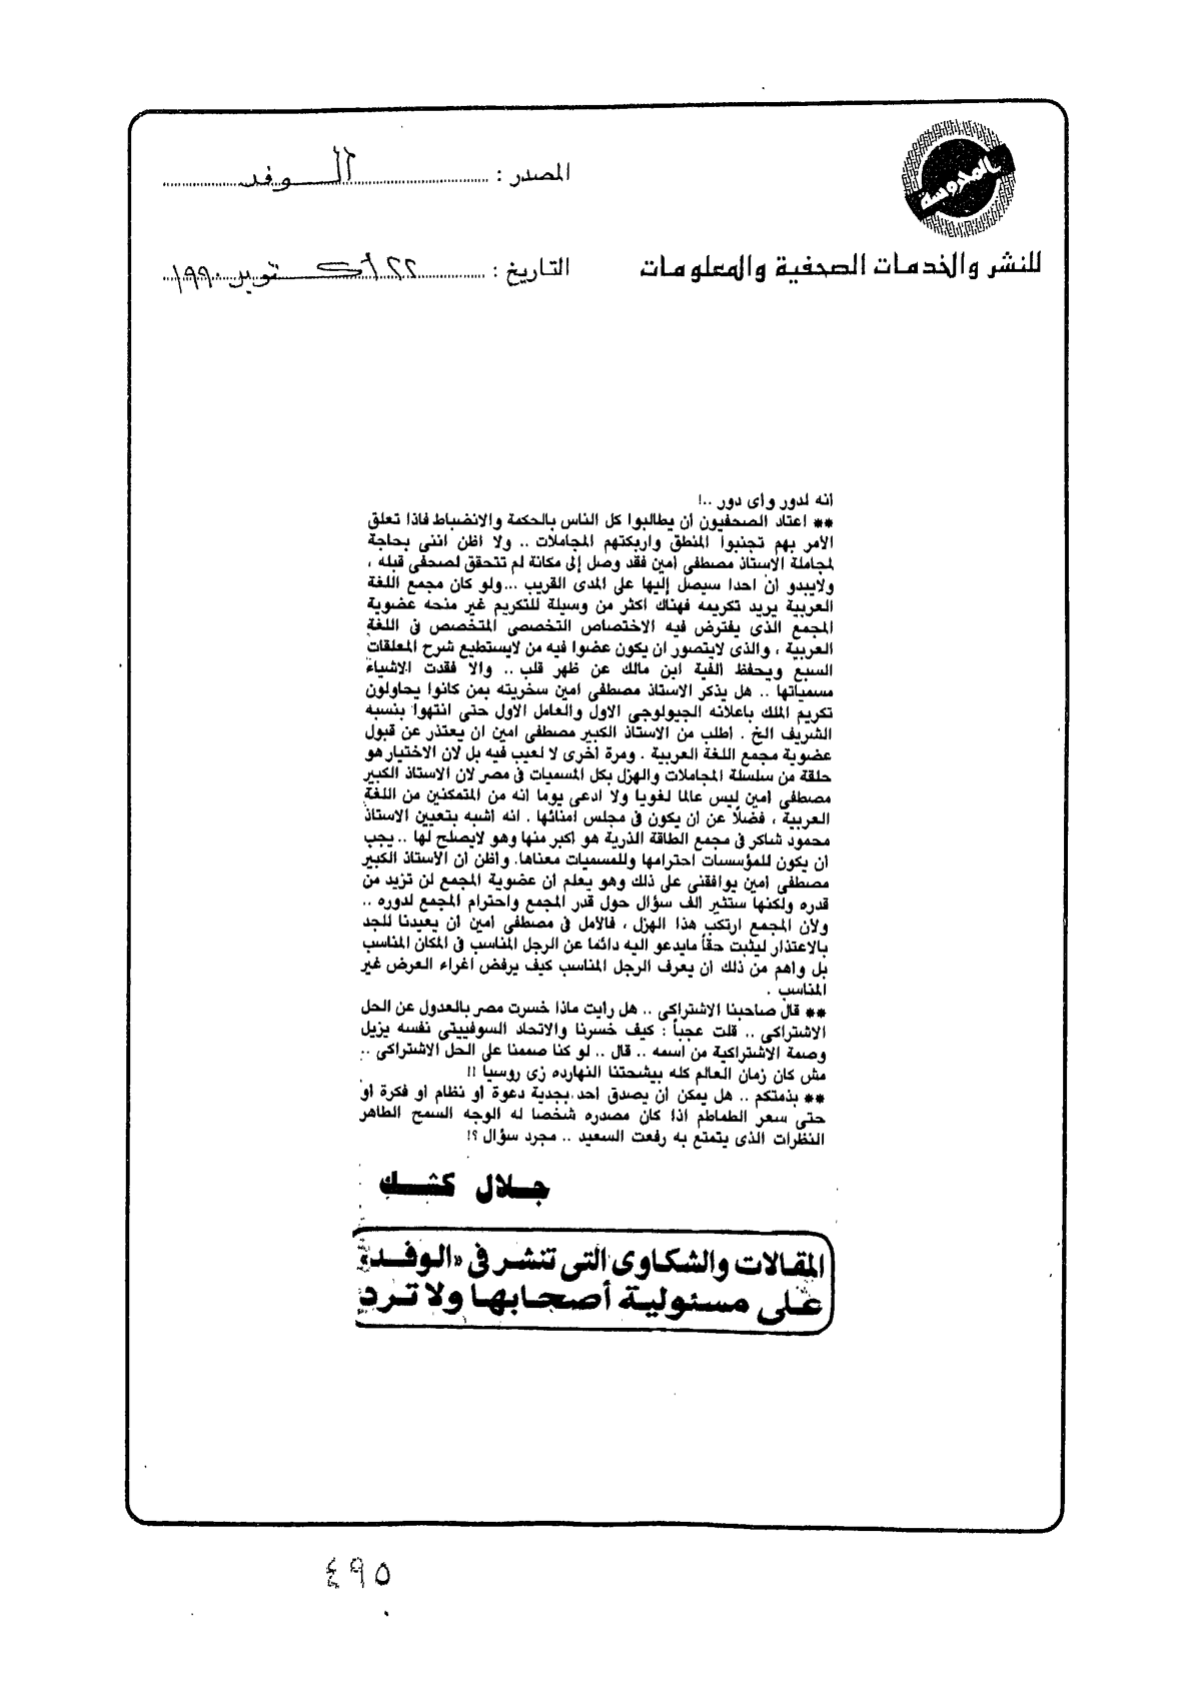 بالمدوسة
للنشر والخدمات الصحفية والمعلومات
المصدر : الوفد
التاريخ : ٢٢ أكتوبر ١٩٩٠
انه لدور واى دور ..!
** اعتاد الصحفيون أن يطالبوا كل الناس بالحكمة والانضباط فاذا تعلق
الامر بهم تجنبوا المنطق واربكتهم المجاملات .. ولا اظن اننى بحاجة
لمجاملة الاستاذ مصطفى أمين فقد وصل إلى مكانة لم تتحقق لصحفى قبله ،
ولايبدو أن احدا سيصل إليها على المدى القريب ...ولو كان مجمع اللغة
العربية يريد تكريمه فهناك اكثر من وسيلة للتكريم غير منحه عضوية
المجمع الذى يفترض فيه الاختصاص التخصصى المتخصص فى اللغة
العربية ، والذى لايتصور ان يكون عضوا فيه من لايستطيع شرح المعلقات
السبع ويحفظ الفية ابن مالك عن ظهر قلب .. والا فقدت الاشياء
مسمياتها .. هل يذكر الاستاذ مصطفى امين سخريته بمن كانوا يحاولون
تكريم الملك باعلانه الجيولوجى الاول والعامل الاول حتى انتهوا بنسبه
الشريف الخ . أطلب من الاستاذ الكبير مصطفى امين ان يعتذر عن قبول
عضوية مجمع اللغة العربية . ومرة أخرى لا لعيب فيه بل لان الاختيار هو
حلقة من سلسلة المجاملات والهزل بكل المسميات فى مصر لان الاستاذ الكبير
مصطفى امين ليس عالما لغويا ولا ادعى يوما انه من المتمكنين من اللغة
العربية ، فضلاً عن ان يكون فى مجلس امنائها . انه اشبه بتعيين الاستاذ
محمود شاكر فى مجمع الطاقة الذرية هو أكبر منها وهو لايصلح لها .. يجب
أن يكون للمؤسسات احترامها وللمسميات معناها. واظن ان الاستاذ الكبير
مصطفى امين يوافقنى على ذلك وهو يعلم أن عضوية المجمع لن تزيد من
قدره ولكنها ستثير الف سؤال حول قدر المجمع واحترام المجمع لدوره ..
ولان المجمع ارتكب هذا الهزل ، فالأمل فى مصطفى امين أن يعيدنا للجد
بالاعتذار ليثبت حقاً مايدعو اليه دائما عن الرجل المناسب فى المكان المناسب
بل واهم من ذلك ان يعرف الرجل المناسب كيف يرفض اغراء العرض غير
المناسب .
** قال صاحبنا الاشتراكى .. هل رايت ماذا خسرت مصر بالعدول عن الحل
الاشتراكى .. قلت عجباً : كيف خسرنا والاتحاد السوفييتى نفسه يزيل
وصمة الاشتراكية من اسمه .. قال .. لو كنا صممنا على الحل الاشتراكى ..
مش كان زمان العالم كله بيشحتنا النهارده زى روسيا !!
** بذمتكم .. هل يمكن ان يصدق احد بجدية دعوة او نظام او فكرة او
حتى سعر الطماطم اذا كان مصدره شخصا له الوجه السمح الطاهر
النظرات الذى يتمتع به رفعت السعيد .. مجرد سؤال ؟!
جـلال كشـك
المقالات والشكاوى التى تنشر فى «الوفد»
على مسئولية أصحابها ولا ترد
٤٩٥